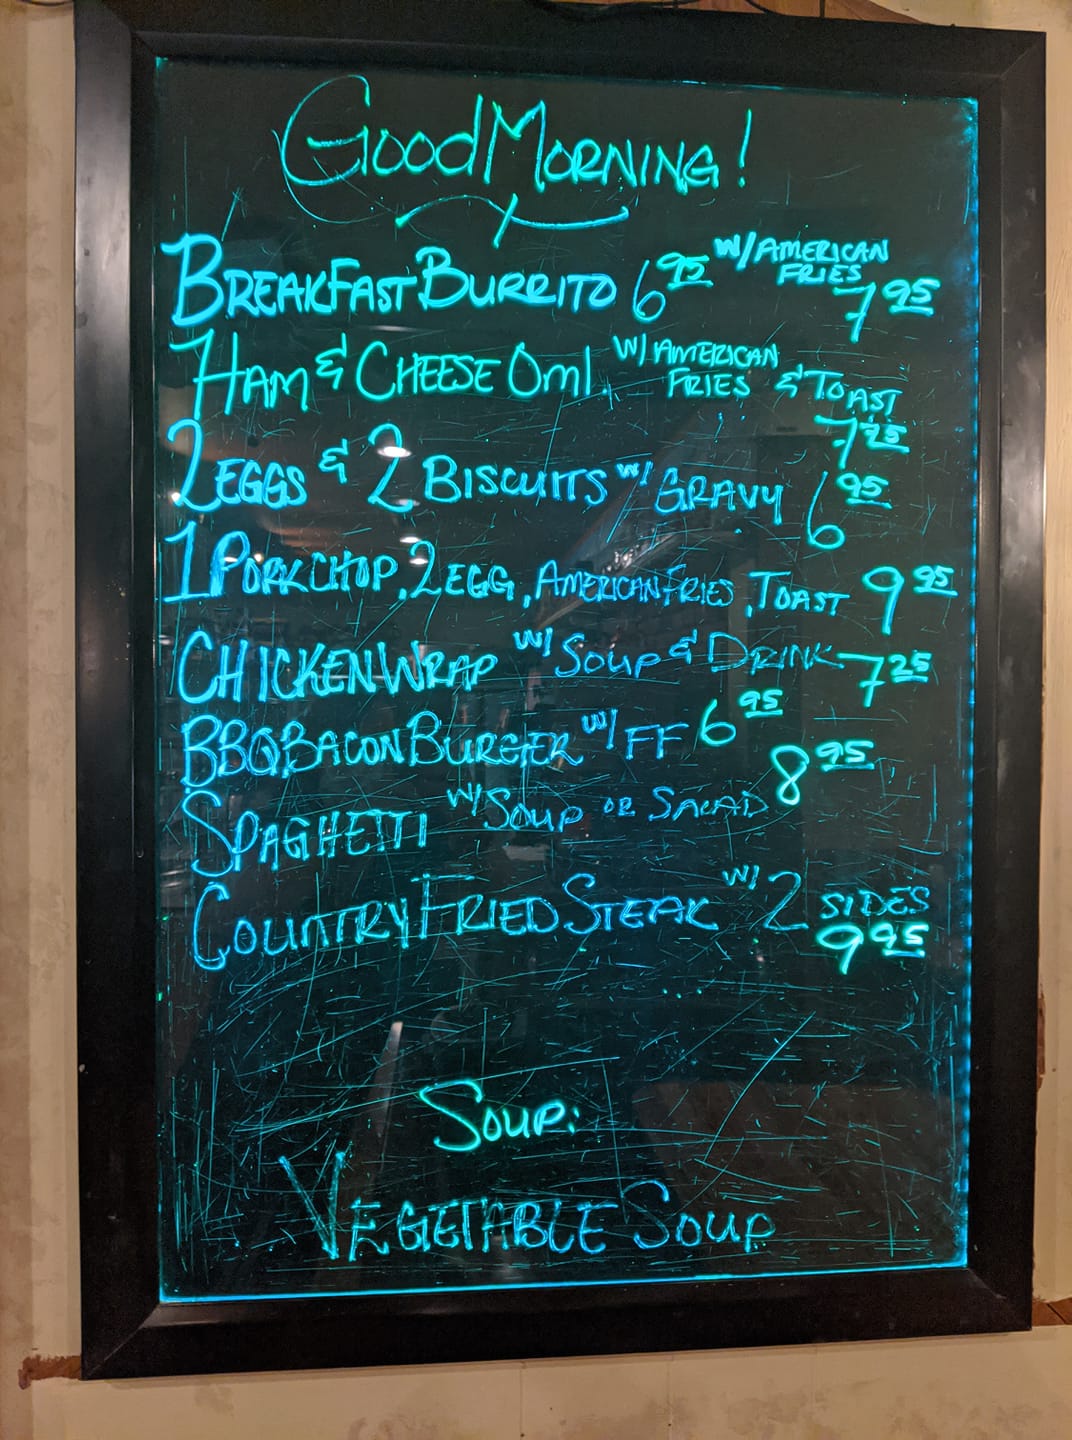 Good Morning!
Breakfast Burrito 6.95 w/ American Fries 7.95
Ham & Cheese Oml. w/ American Fries & Toast
7.25
2 Eggs & 2 Biscuits w/ Gravy 6.95
1 Pork Chop, 2 Egg, American Fries, Toast 9.95
Chicken Wrap w/ Soup & Drink 7.25
BBQ Bacon Burger w/ FF 6.95
Spaghetti w/ Soup or Salad 8.95
Country Fried Steak w/ 2 Sides
9.95
Soup:
Vegetable Soup